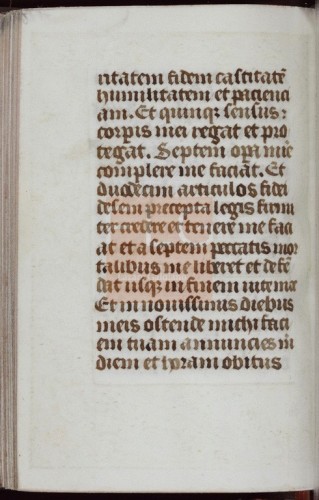 ritatem fidem castitatē
humilitatem et pacienci
am. Et quinqꝫ sensus
corpis mei regat et pro
tegat. Septem opa mīe
complere me faciat. Et
duodecim articulos fidei
decem precepta legis firmi
ter credere et tenere me faci
at et a septem peccatis mor
talibus me liberet et defē
dat usqꝫ in finem vite mee
Et in novissimis diebus
meis ostende michi faci
em tuam annuncies m̄
diem et horam obitus